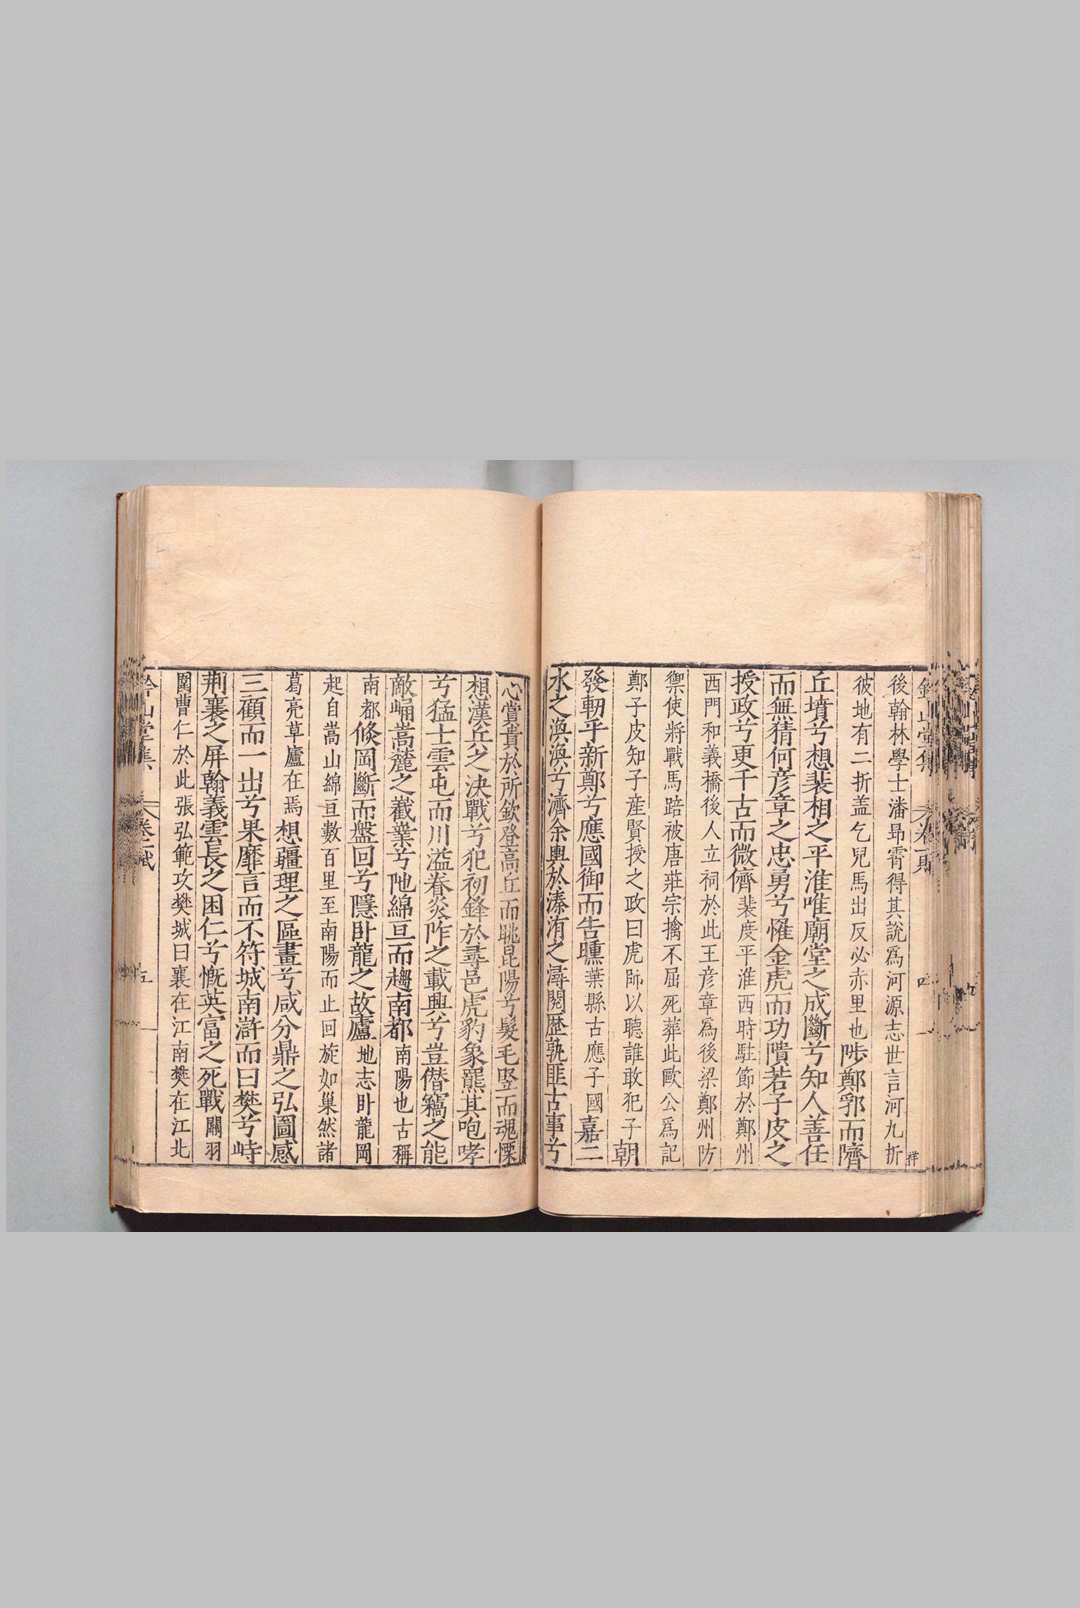 後翰林學士潘昻霄得其說爲河源志世言河九折
彼地有二折盖乞兒馬出反必赤里也陟鄭郛而隮
丘墳兮想裴相之平淮唯廟堂之成斷兮知人善任
而無猜何彦章之忠勇兮惟金虎而功隤若子皮之
授政兮更千古而微儕裴度平淮西時駐節於鄭州
西門和義橋後人立祠於此王彦章爲後梁鄭州防
禦使將戰馬踣被唐莊宗擒不屈死葬此歐公爲記
鄭子皮知子產賢授之政曰虎帥以聽誰敢犯子朝
發軔乎新鄭兮應國御而告曛葉縣古應子國嘉二
水之渙渙兮濟余輿於溱洧之潯閱歷孰匪古事兮
心賞貴於所欽登高丘而眺昆陽兮髮毛竪而魂慄
想漢兵之決戰兮犯初鋒於尋邑虎豹象羆其咆哮
兮猛士雲屯而川溢眷炎阼之載興兮豈僭竊之能
敵崛嵩麓之嶻嶪兮阤綿亘而趨南都南陽也古稱
南都倏岡斷而盤回兮隱卧龍之故廬地志卧龍岡
起自嵩山綿亘數百里至南陽而止回旋如巢然諸
葛亮草廬在焉想疆理之區畫兮咸分鼎之弘圖感
三顧而一出兮果靡言而不符城南滸而曰樊兮峙
荆襄之屏翰義雲長之困仁兮慨英富之死戰關羽
圍曹仁於此張弘範攻樊城曰襄在江南樊在江北
鈐山堂集 卷一賦 五